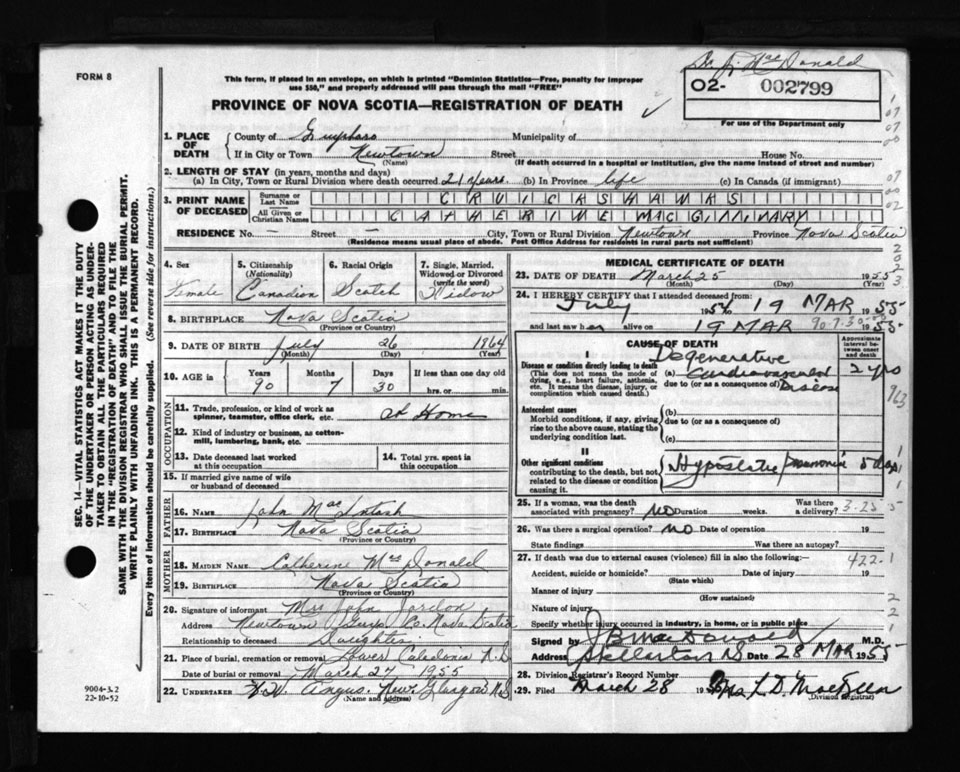 Dr. J. MacDonald
FORM 8
This form, if placed in an envelope, on which is printed "Dominion Statistics—Free, penalty for improper
use $50," and properly addressed will pass through the mail "FREE"
02- 002799
PROVINCE OF NOVA SCOTIA—REGISTRATION OF DEATH
For use of the Department only
1. PLACE OF DEATH
County of Guysboro Municipality of
If in City or Town Newtown Street House No.
(Name) (If death occurred in a hospital or institution, give the name instead of street and number)
2. LENGTH OF STAY (in years, months and days)
(a) In City, Town or Rural Division where death occurred 21 years (b) In Province life (c) In Canada (if immigrant)
3. PRINT NAME OF DECEASED
Surname or Last Name CRUICKSHANKS
All Given or Christian Names CATHERINE MAC
RESIDENCE No. — Street — City, Town or Rural Division Newtown Province Nova Scotia
(Residence means usual place of abode. Post Office Address for residents in rural parts not sufficient)
4. Sex
Female
5. Citizenship (Nationality)
Canadian
6. Racial Origin
Scotch
7. Single, Married, Widowed or Divorced (write the word)
Widow
8. BIRTHPLACE Nova Scotia
(Province or Country)
9. DATE OF BIRTH July 26 1864
(Month) (Day) (Year)
10. AGE in Years Months Days If less than one day old
90 7 30 hrs. or min.
OCCUPATION
11. Trade, profession, or kind of work as spinner, teamster, office clerk, etc. At Home
12. Kind of industry or business, as cotton-mill, lumbering, bank, etc.
13. Date deceased last worked at this occupation
14. Total yrs. spent in this occupation
15. If married give name of wife or husband of deceased
FATHER
16. Name John MacIntosh
17. Birthplace Nova Scotia
(Province or Country)
MOTHER
18. Maiden Name Catherine MacDonald
19. Birthplace Nova Scotia
(Province or Country)
20. Signature of informant Mrs John
Address Newtown Guys Co. Nova Scotia
Relationship to deceased Daughter
21. Place of burial, cremation or removal Lower Caledonia N.S
Date of burial or removal March 27 1955
22. UNDERTAKER Angus. New Glasgow N.S
(Name and address)
MEDICAL CERTIFICATE OF DEATH
23. DATE OF DEATH March 25 1955
(Month) (Day)
24. I HEREBY CERTIFY that I attended deceased from:
July 19 MAR 1955
and last saw her alive on 19 MAR 1955
CAUSE OF DEATH
Approximate interval between onset and death
I
Disease or condition directly leading to death
(This does not mean the mode of dying, e.g., heart failure, asthenia, etc. It means the disease, injury, or complication which caused death.)
(a) Degenerative Cardiovascular Disease 2 yrs
due to (or as a consequence of)
Antecedent causes
Morbid conditions, if any, giving rise to the above cause, stating the underlying condition last.
(b)
due to (or as a consequence of)
(c)
II
Other significant conditions contributing to the death, but not related to the disease or condition causing it.
Hypostatic pneumonia 5 days
25. If a woman, was the death associated with pregnancy? NO Duration weeks. Was there a delivery?
3-25-5
26. Was there a surgical operation? NO Date of operation 19
State findings Was there an autopsy?
27. If death was due to external causes (violence) fill in also the following:—
422.1
Accident, suicide or homicide? Date of injury 19
(State which)
Manner of injury
(How sustained)
Nature of injury
Specify whether injury occurred in industry, in home, or in public place
Signed by JB MacDonald M.D.
Address Stellarton NS Date 28 MAR 1955
28. Division Registrar's Record Number
29. Filed March 28
(Division Registrar)
SEC. 14—VITAL STATISTICS ACT MAKES IT THE DUTY
OF THE UNDERTAKER OR PERSON ACTING AS UNDER-
TAKER TO OBTAIN ALL THE PARTICULARS REQUIRED
IN THE "REGISTRATION OF DEATH" AND TO FILE THE
SAME WITH THE DIVISION REGISTRAR WHO SHALL ISSUE THE BURIAL PERMIT.
WRITE PLAINLY WITH UNFADING INK. THIS IS A PERMANENT RECORD.
Every item of information should be carefully supplied. (See reverse side for instructions.)
9004-3.2
22-10-52